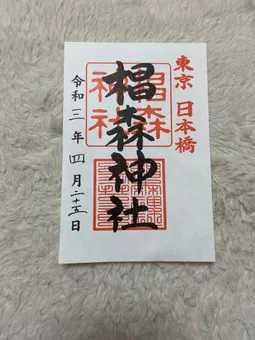 東京 日本橋
椙森神社
椙森
神社
令和三年四月二十五日